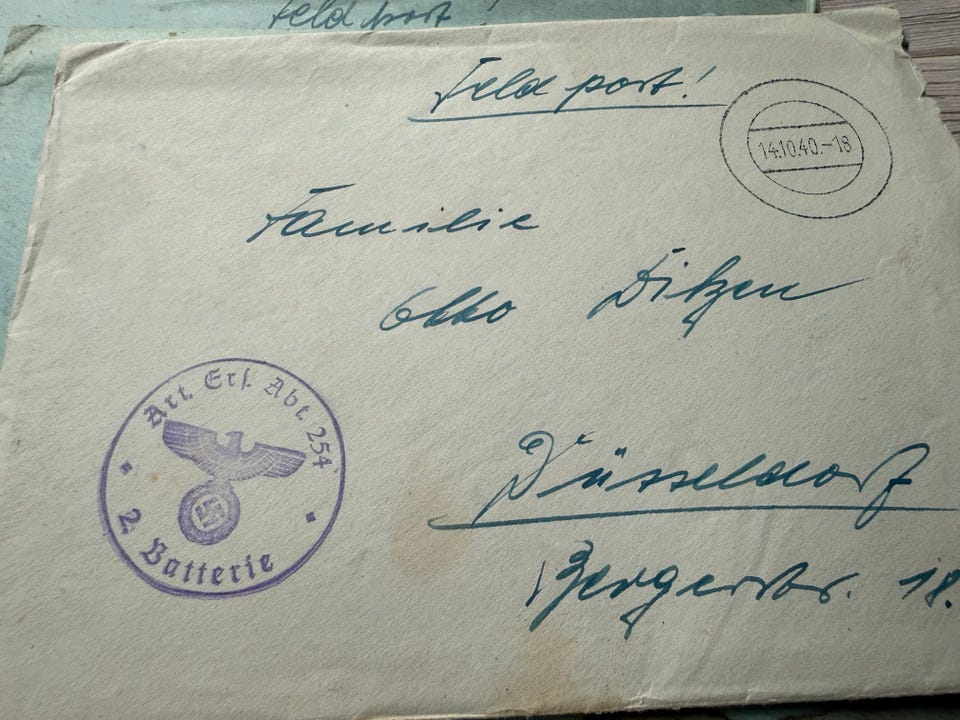 Feldpost!
Feldpost!
14.10.40.–18
Familie
Otto Ditzen
Art. Ers. Abt. 254
2. Batterie
Düsseldorf
Bergerstr. 18.